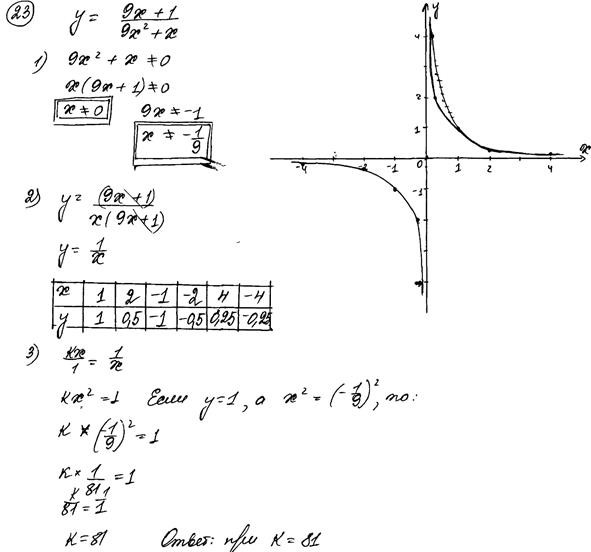 23 y = (9x + 1)/(9x² + x)
1) 9x² + x ≠ 0
x(9x + 1) ≠ 0
x ≠ 0 9x ≠ -1
x ≠ -1/9
2) y = (9x + 1)/x(9x + 1)
y = 1/x
x 1 2 -1 -2 4 -4
y 1 0,5 -1 -0,5 0,25 -0,25
3) kx/1 = 1/x
kx² = 1 Если y = 1, а x² = (-1/9)², то:
k * (-1/9)² = 1
k × 1/81 = 1
k/81 = 1/1
k = 81 Ответ: при k = 81
y
4
2
1
x
-4 -2 0 1 2 4
-1